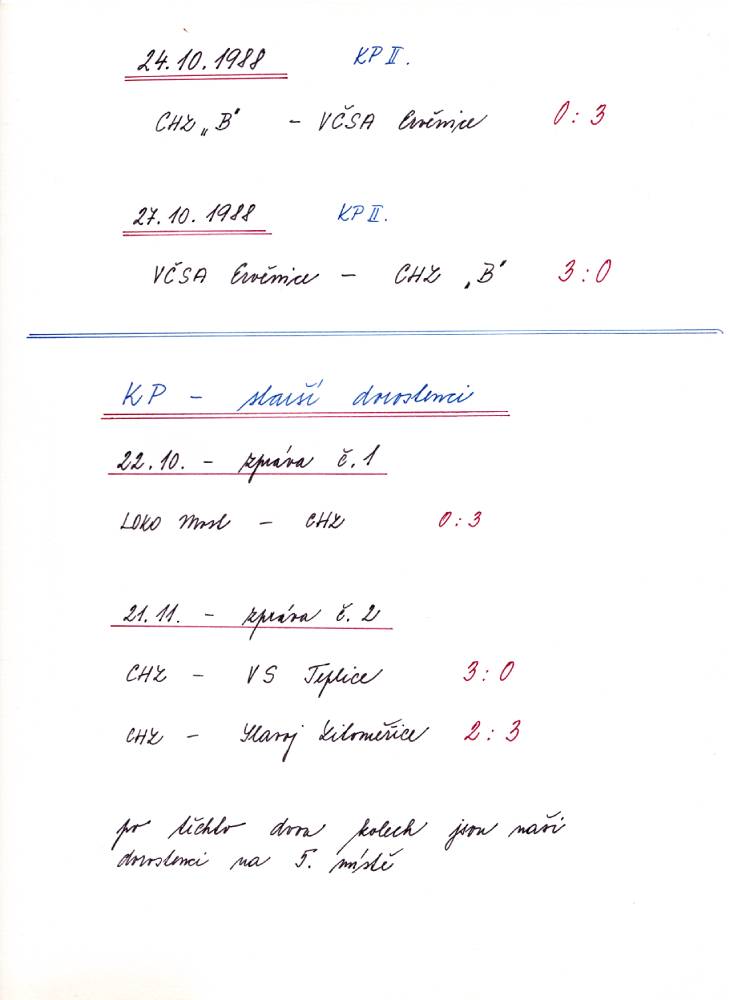 24.10.1988 KP II.
CHZ „B" - VČSA Ervěnice 0:3
27.10.1988 KP II.
VČSA Ervěnice - CHZ „B" 3:0
KP - starší dorostenci
22.10. - zpráva č. 1
LOKO Most - CHZ 0:3
21.11. - zpráva č. 2
CHZ - VS Teplice 3:0
CHZ - Slavoj Litoměřice 2:3
po těchto dvou kolech jsou naši
dorostenci na 5. místě